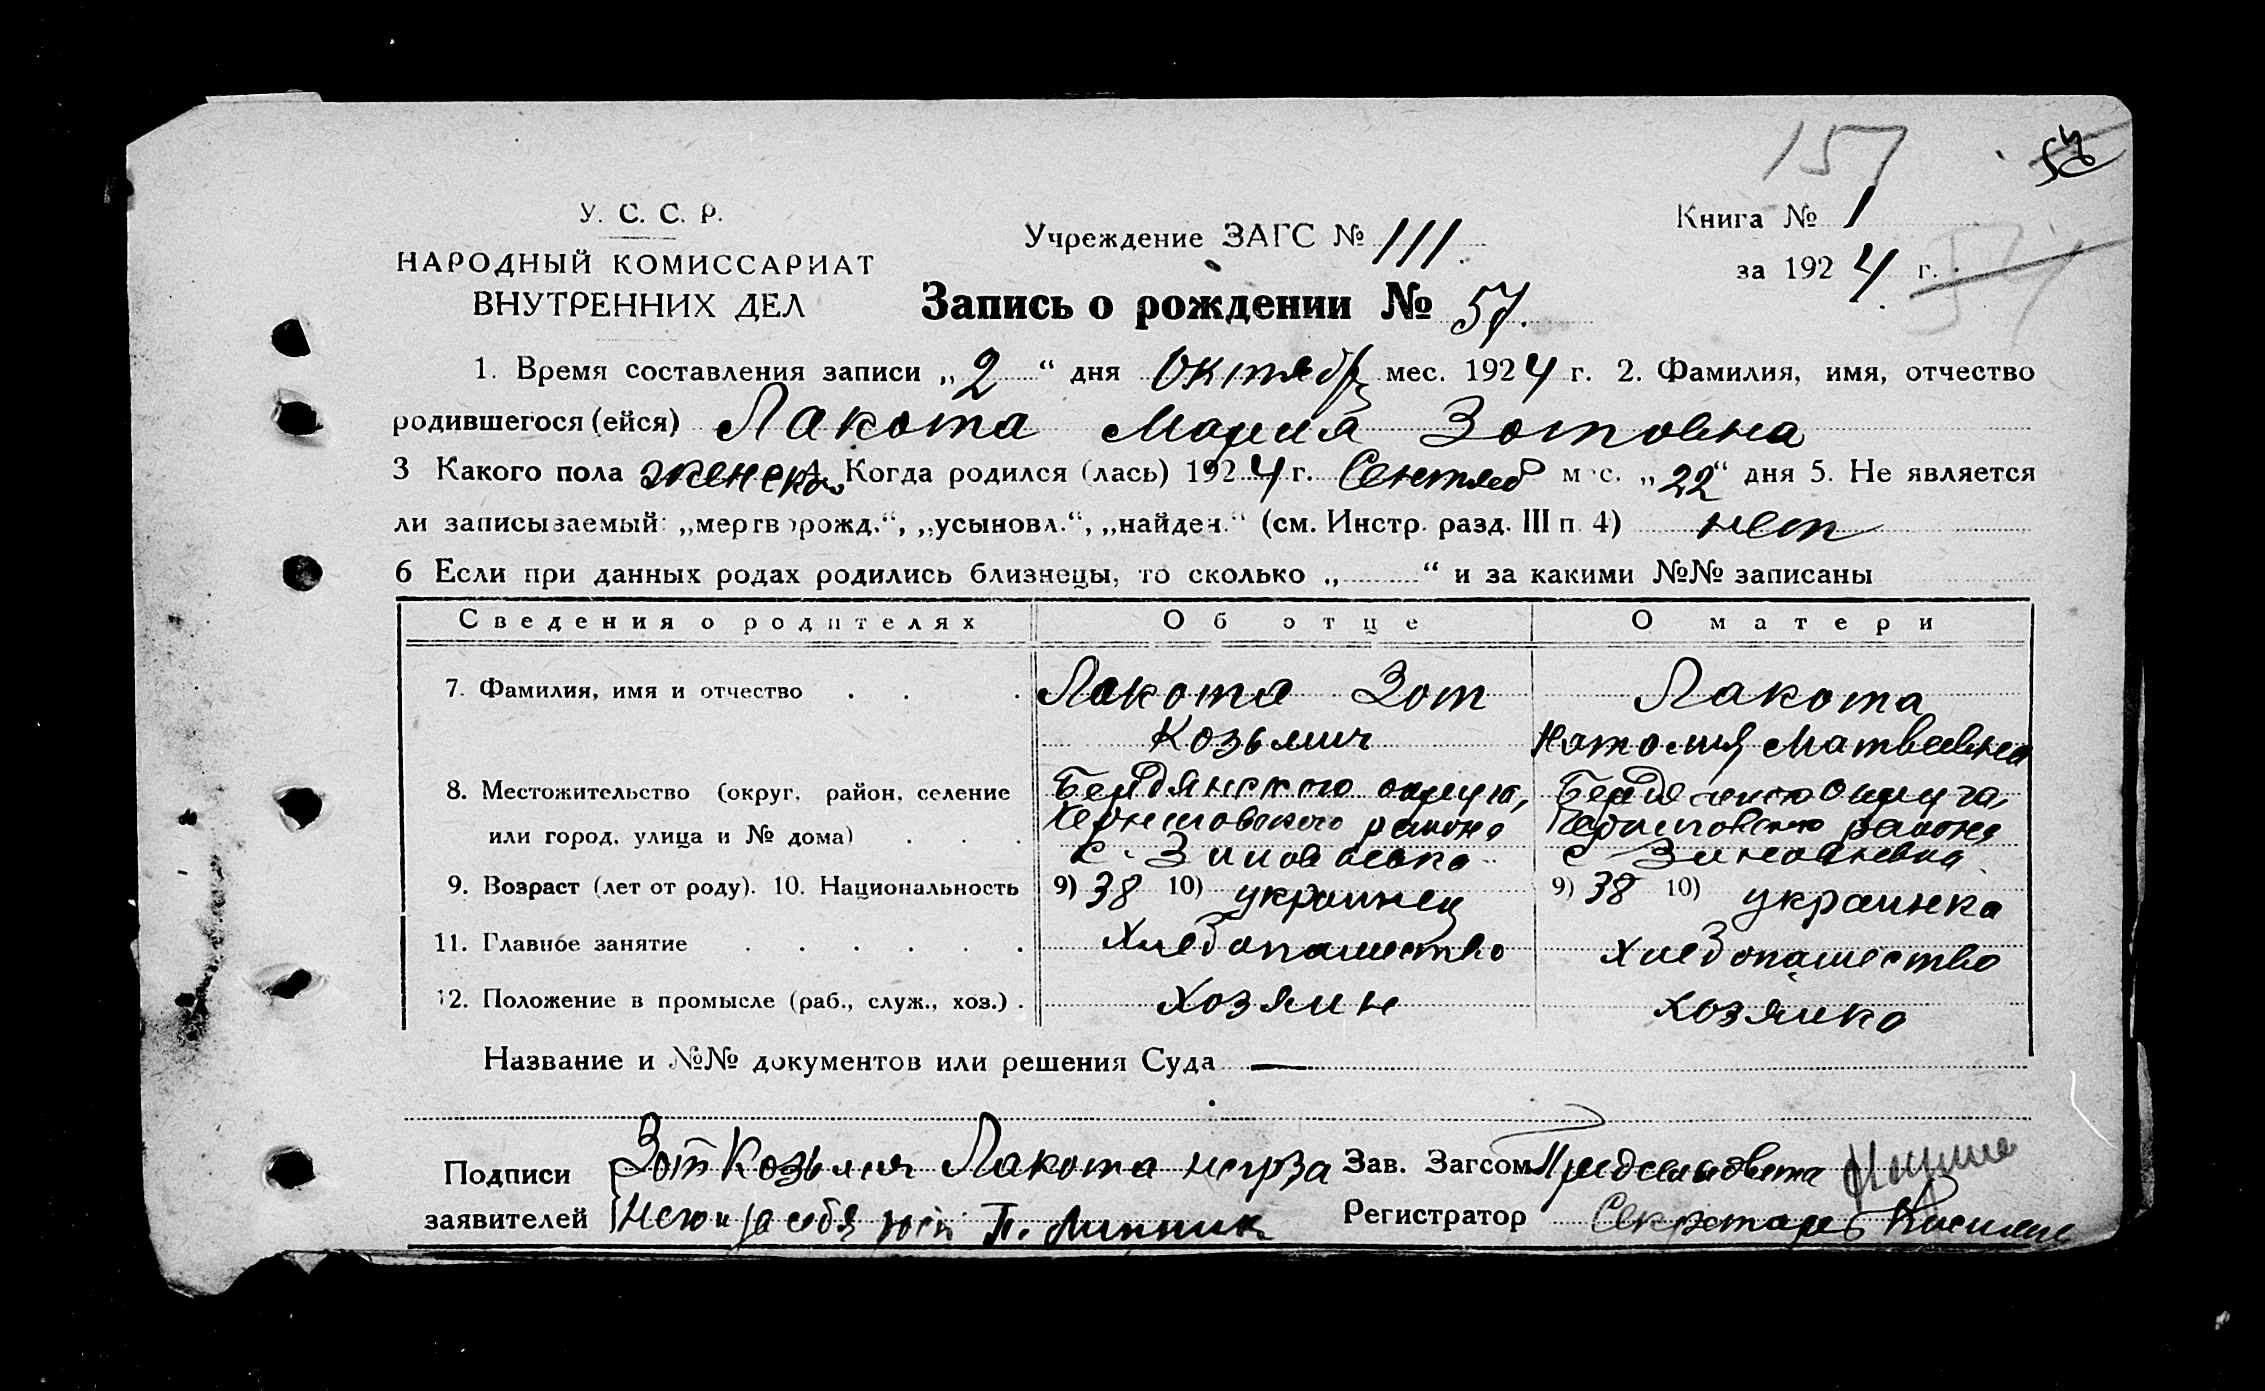 157
У. С. С. Р.
НАРОДНЫЙ КОМИССАРИАТ
ВНУТРЕННИХ ДЕЛ
Учреждение ЗАГС № 111.
Книга № 1
за 1924 г.
Запись о рождении № 57.
1. Время составления записи „2“ дня Октябр мес. 1924 г. 2. Фамилия, имя, отчество
родившегося (ейся) Лакота Мария Зотовна
3 Какого пола женско 4. Когда родился (лась) 1924 г. Сентяб мес. „22“ дня 5. Не является
ли записываемый: „мертворожд.“, „усыновл.“, „найден.“ (см. Инстр. разд. III п. 4) нет
6 Если при данных родах родились близнецы, то сколько „ “ и за какими №№ записаны
Сведения о родителях Об отце О матери
7. Фамилия, имя и отчество Лакота Зот Лакота
Козьмич Наталия Матвеевна
8. Местожительство (округ, район, селение Бердянского округа, Бердянского Округа,
или город, улица и № дома) района района
с. с
9. Возраст (лет от роду). 10. Национальность 9) 38 10) украинец 9) 38 10) украинка
11. Главное занятие Хлебопашество Хлебопашество
12. Положение в промысле (раб., служ., хоз.) Хозяин Хозяйка
Название и №№ документов или решения Суда —
Подписи Зот Козьмич Лакота негр за Зав. Загсом Предсельсовета
заявителей него и за себя П. Линник Регистратор Секретарь